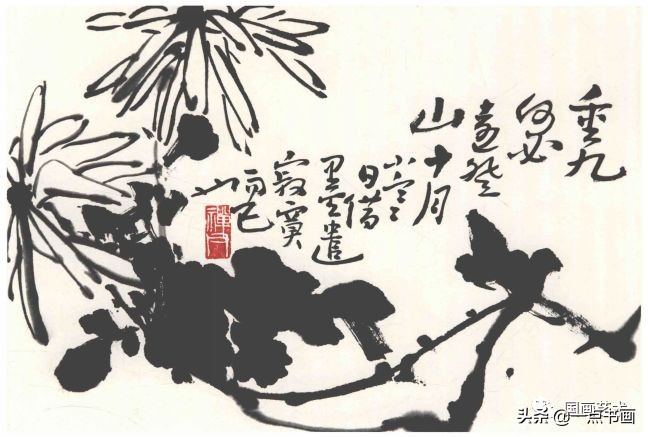 重九
何必
遠登
山十月
小
日借
墨遣
寂寞
而已
国画艺术
头条 @一点书画